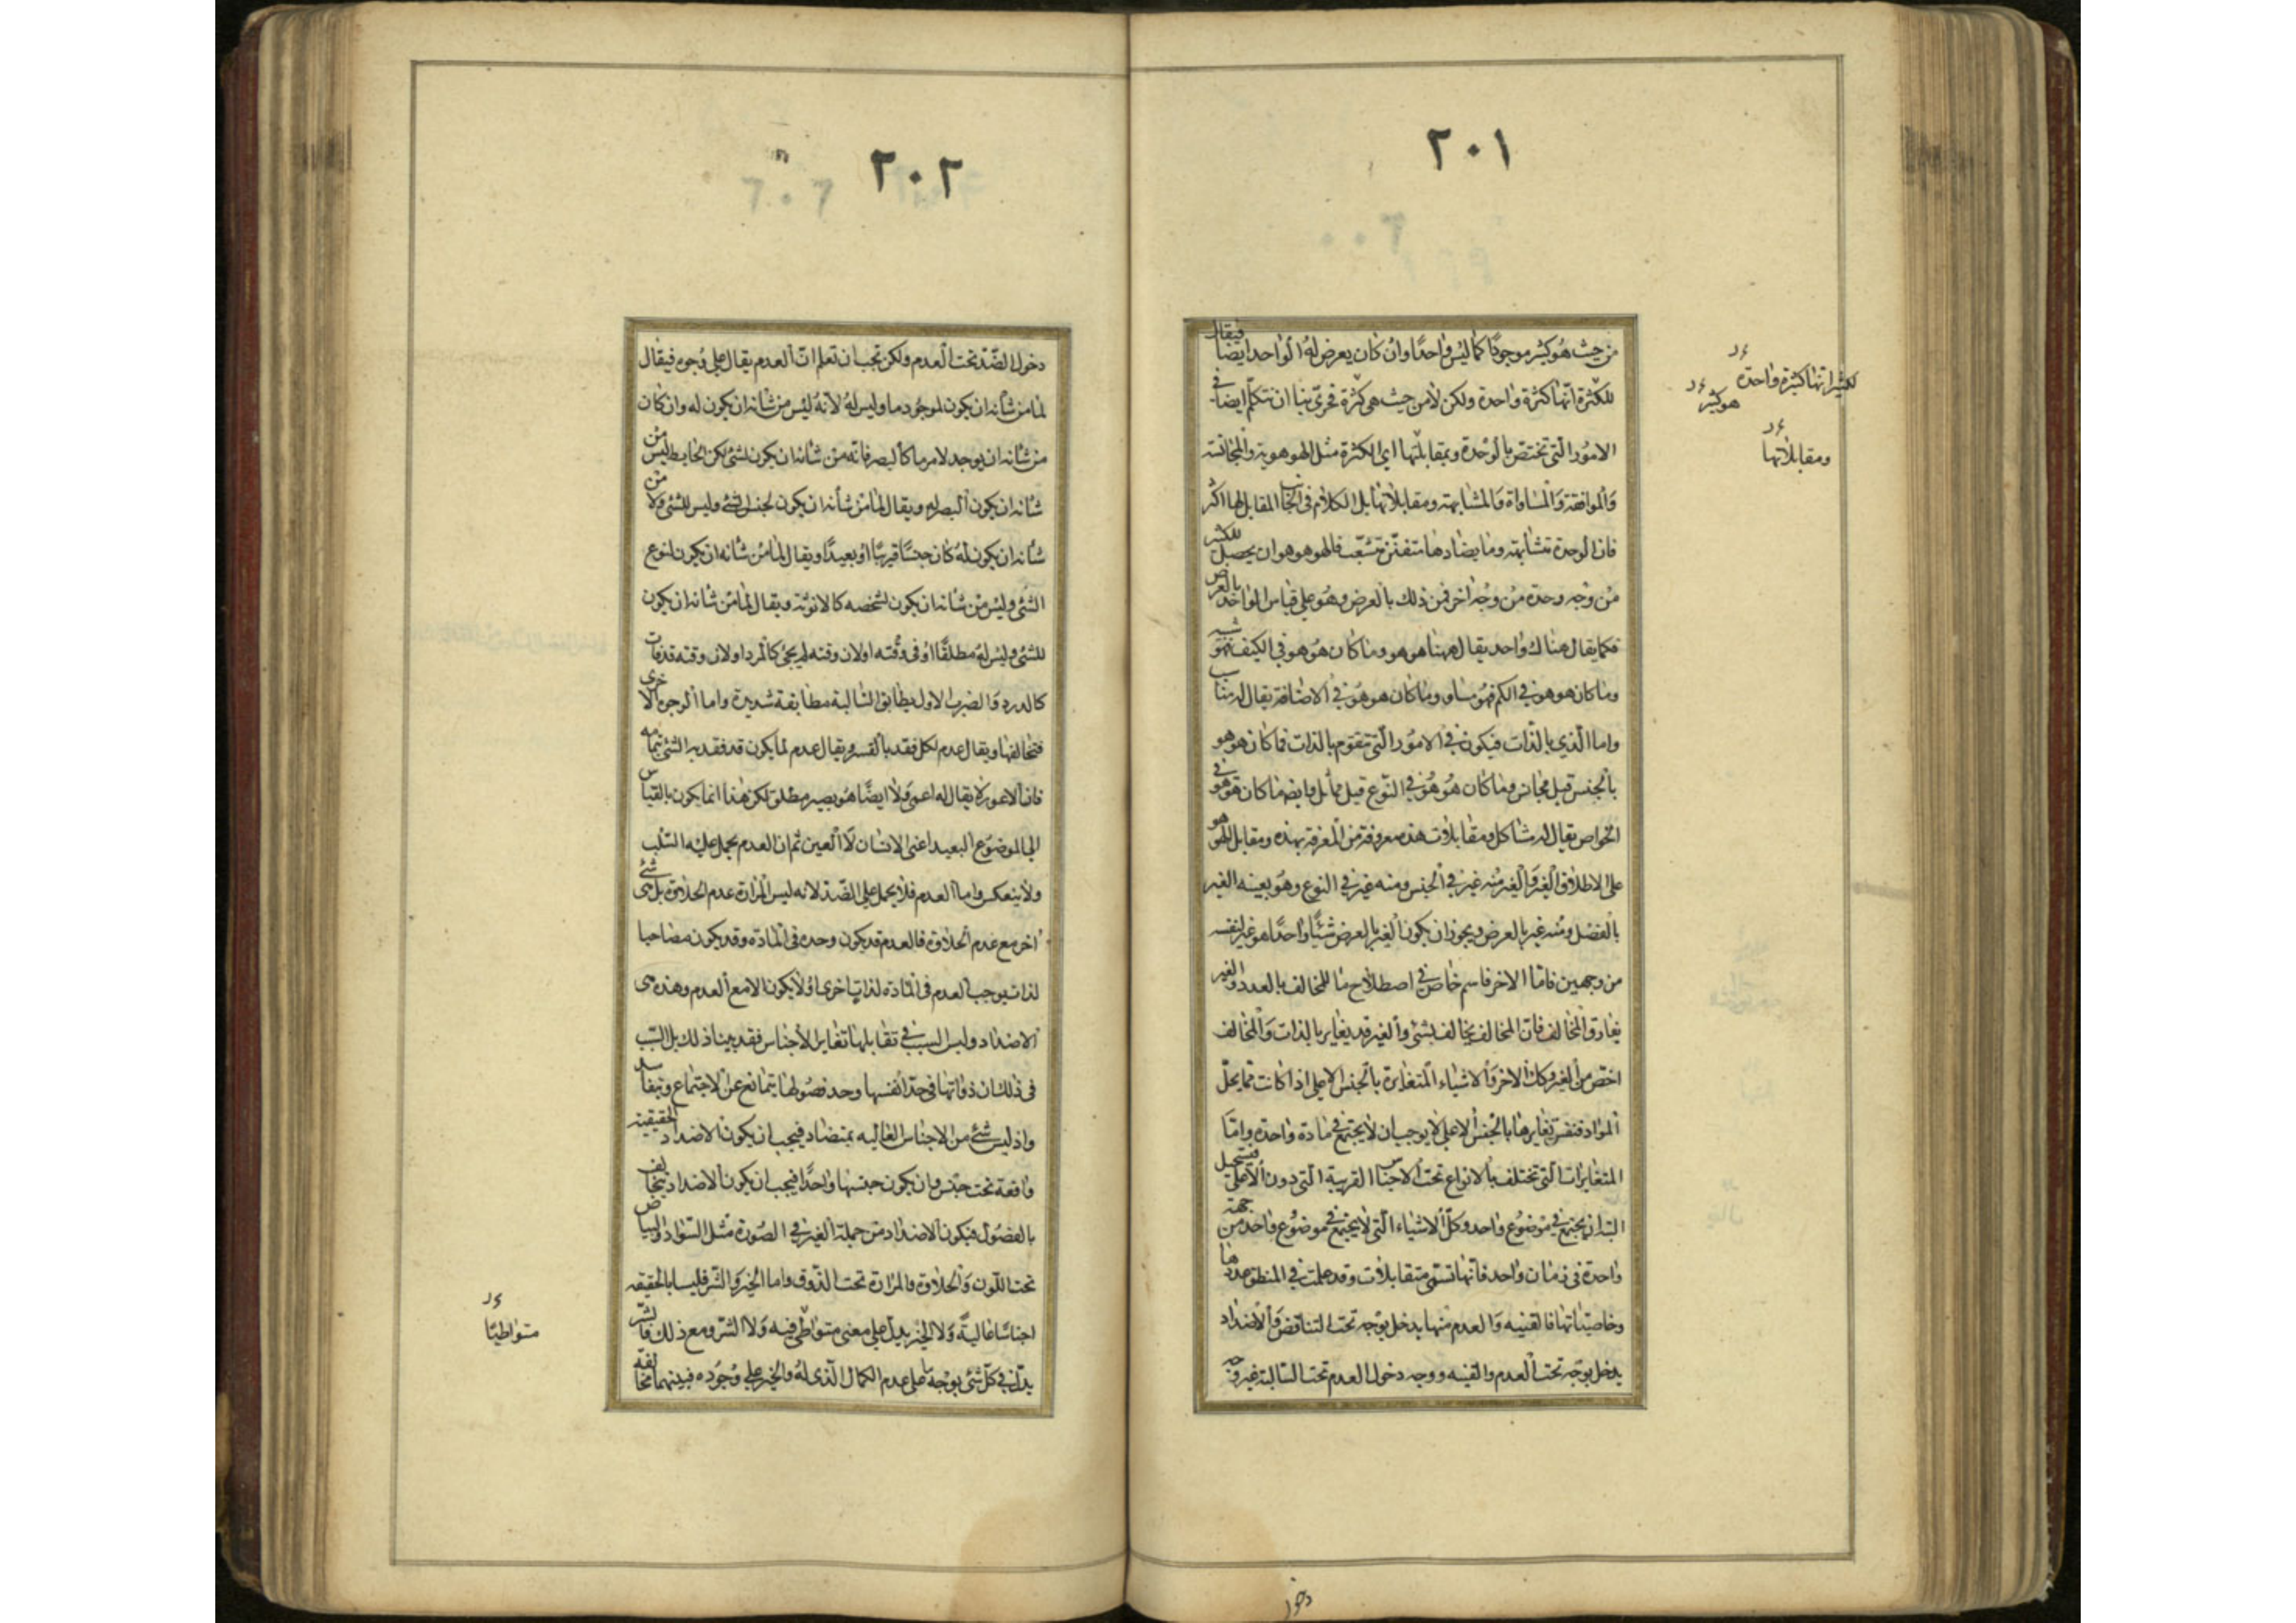 ٢٠١
من حيث هو كثير موجودًا كما ليس واحدًا وان كان يعرض له الواحد ايضا فيقال
للكثرة انها كثرة واحدة ولكن لا من حيث هى كثرة فحرىّ بنا ان نتكلّم ايضا فى
الامور الّتى تختصّ بالوحدة وبمقابلتها اى الكثرة مثل الهوهوية والمجانسة
والموافقة والمساواة والمشابهة ومقابلاتها بل الكلام فى الجانب المقابل لها اكثر
فان الوحدة متشابهة وما يضادها متفنّن متشعّب فالهوهو هو ان يحصل للكثير
من وجه وحدة من وجه اخر فمن ذلك بالعرض وهو على قياس الواحد بالعرض
فكما يقال هناك واحد يقال ههنا هوهو وما كان هو هو فى الكيف فهو شبيه
وما كان هو هو فى الكم فهو مساو وما كان هو هو فى الاضافة يقال له مناسب
واما الّذى بالذات فيكون فى الامور الّتى تتقوم بالذات فما كان هو هو
بالجنس قيل مجانس وما كان هو هو فى النوع قيل مماثل وايضا ما كان هو هو فى
الخواص يقال له مشاكل ومقابلات هذه معروفة من المعرفة بهذه ومقابل الهو هو
على الاطلاق الغير والغير منه غير فى الجنس ومنه غير فى النوع وهو بعينه الغير
بالفصل ومنه غير بالعرض ويجوز ان يكون الغير بالعرض شيئًا واحدًا هو غير لنفسه
من وجهين فامّا الاخر فاسم خاص فى اصطلاح ما للمخالف بالعدد والغير
يفارق المخالف فان المخالف يخالف بشئ والغير قد يغاير بالذات والمخالف
اخصّ من الغير وكذا الاخر والاشياء المتغايرة بالجنس الاعلى اذا كانت مما يحلّ
المواد فنفس تغايرها بالجنس الاعلى لا يوجب ان لا يجتمع فى مادة واحدة وامّا
المتغايرات الّتى تختلف بالانواع تحت الاجناس القريبة الّتى دون الاعلى فيستحيل
البتة ان يجتمع فى موضوع واحد وكلّ الاشياء الّتى لا يجتمع فى موضوع واحد من جهة
واحدة فى زمان واحد فانها تسمّى متقابلات وقد علمت فى المنطق عددها
وخاصيّاتها فالقنية والعدم منها يدخل بوجه تحت التناقض والاضداد
يدخل بوجه تحت العدم والقنية ووجه دخول العدم تحت السالبة غير وجه
للكثير انها كثيرة واحدة
هو كثير
ومقابلاتها
دخول
٢٠٢
دخول الضّد تحت العدم ولكن تجب ان تعلم انّ العدم يقال على وُجوه فيقال
لما من شأنه ان يكون لموجود ما وليس له لانه ليس من شأنه ان يكون له وان كان
من شأنه ان يوجد لامر ما كالبصر فانّه من شأنه ان يكون لشئ لكن الحايط ليس من
شأنه ان يكون البصر له ويقال لما من شأنه ان يكون لجنس الشئ وليس للشئ ولا من
شأنه ان يكون له كان جنسًا قريبًا او بعيدًا ويقال لما من شأنه ان يكون لنوع
الشئ وليس من شأنه ان يكون لشخصه كالانوثة ويقال لما من شأنه ان يكون
للشئ وليس له مطلقًا او فى وقته او لان وقته لم يجئ كالمرد او لان وقته قد فات
كالدرد والضرب الاول يطابق السالبة مطابقة شديدة واما الوجوه الاخرى
فتخالفها ويقال عدم لكل فقد بالقسر ويقال عدم لما يكون قد فقد به الشئ تمامه
فان الاعور لا يقال له اعمى ولا ايضًا هو بصير مطلق لكن هذا انما يكون بالقياس
الى الموضوع البعيد اعنى الانسان لا العين ثم ان العدم يحمل عليه السّلب
ولا ينعكس واما العدم فلا يحمل على الضّد لانه ليس المرارة عدم الحلاوة بل هى شئ
اخر مع عدم الحلاوة فالعدم قد يكون وحده فى المادّة وقد يكون مصاحبا
لذات يوجب العدم فى المادة لذات اخرى او لا يكون الا مع العدم وهذه هى
الاضداد وليس السبب فى تقابلها تغاير الاجناس فقد بينا ذلك بل السّبب
فى ذلك ان ذواتها فى حدّ انفسها وحد فصولها يتمانع عن الاجتماع ويتفاسد
واذ ليس شئ من الاجناس العالية بمتضاد فيجب ان يكون الاضداد الحقيقية
واقعة تحت جنس وان يكون جنسها واحدًا فيجب ان يكون الاضداد يتخالف
بالفصول فيكون الاضداد من جملة الغير فى الصورة مثل السّواد والبياض
تحت اللّون والحلاوة والمرارة تحت الذّوق واما الخير والشّر فليسا بالحقيقه
اجناسًا عالية ولا الخير يدلّ على معنى متواطئ فيه ولا الشّر ومع ذلك فالشّر
يدلّ فى كلّ شئ بوجه ما على عدم الكمال الّذى له والخير على وجوده فبينهما مخالفة
متواطيًا